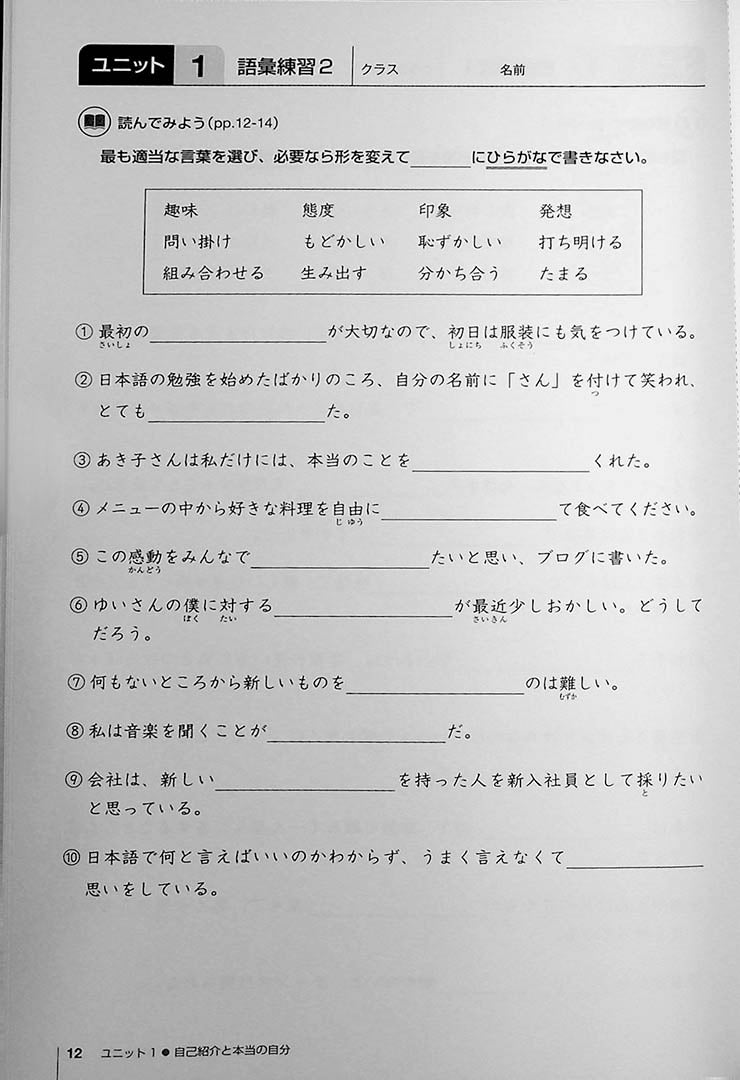 ユニット 1 語彙練習2 クラス 名前
読んでみよう(pp.12-14)
最も適当な言葉を選び、必要なら形を変えて______にひらがなで書きなさい。
趣味 態度 印象 発想
問い掛け もどかしい 恥ずかしい 打ち明ける
組み合わせる 生み出す 分かち合う たまる
① 最初の______が大切なので、初日は服装にも気をつけている。
さいしょ しょにち ふくそう
② 日本語の勉強を始めたばかりのころ、自分の名前に「さん」を付けて笑われ、
つ
とても______た。
③ あき子さんは私だけには、本当のことを______くれた。
④ メニューの中から好きな料理を自由に______て食べてください。
じゆう
⑤ この感動をみんなで______たいと思い、ブログに書いた。
かんどう
⑥ ゆいさんの僕に対する______が最近少しおかしい。どうして
ぼく たい さいきん
だろう。
⑦ 何もないところから新しいものを______のは難しい。
むずか
⑧ 私は音楽を聞くことが______だ。
⑨ 会社は、新しい______を持った人を新入社員として採りたい
と
と思っている。
⑩ 日本語で何と言えばいいのかわからず、うまく言えなくて______
思いをしている。
12 ユニット1●自己紹介と本当の自分